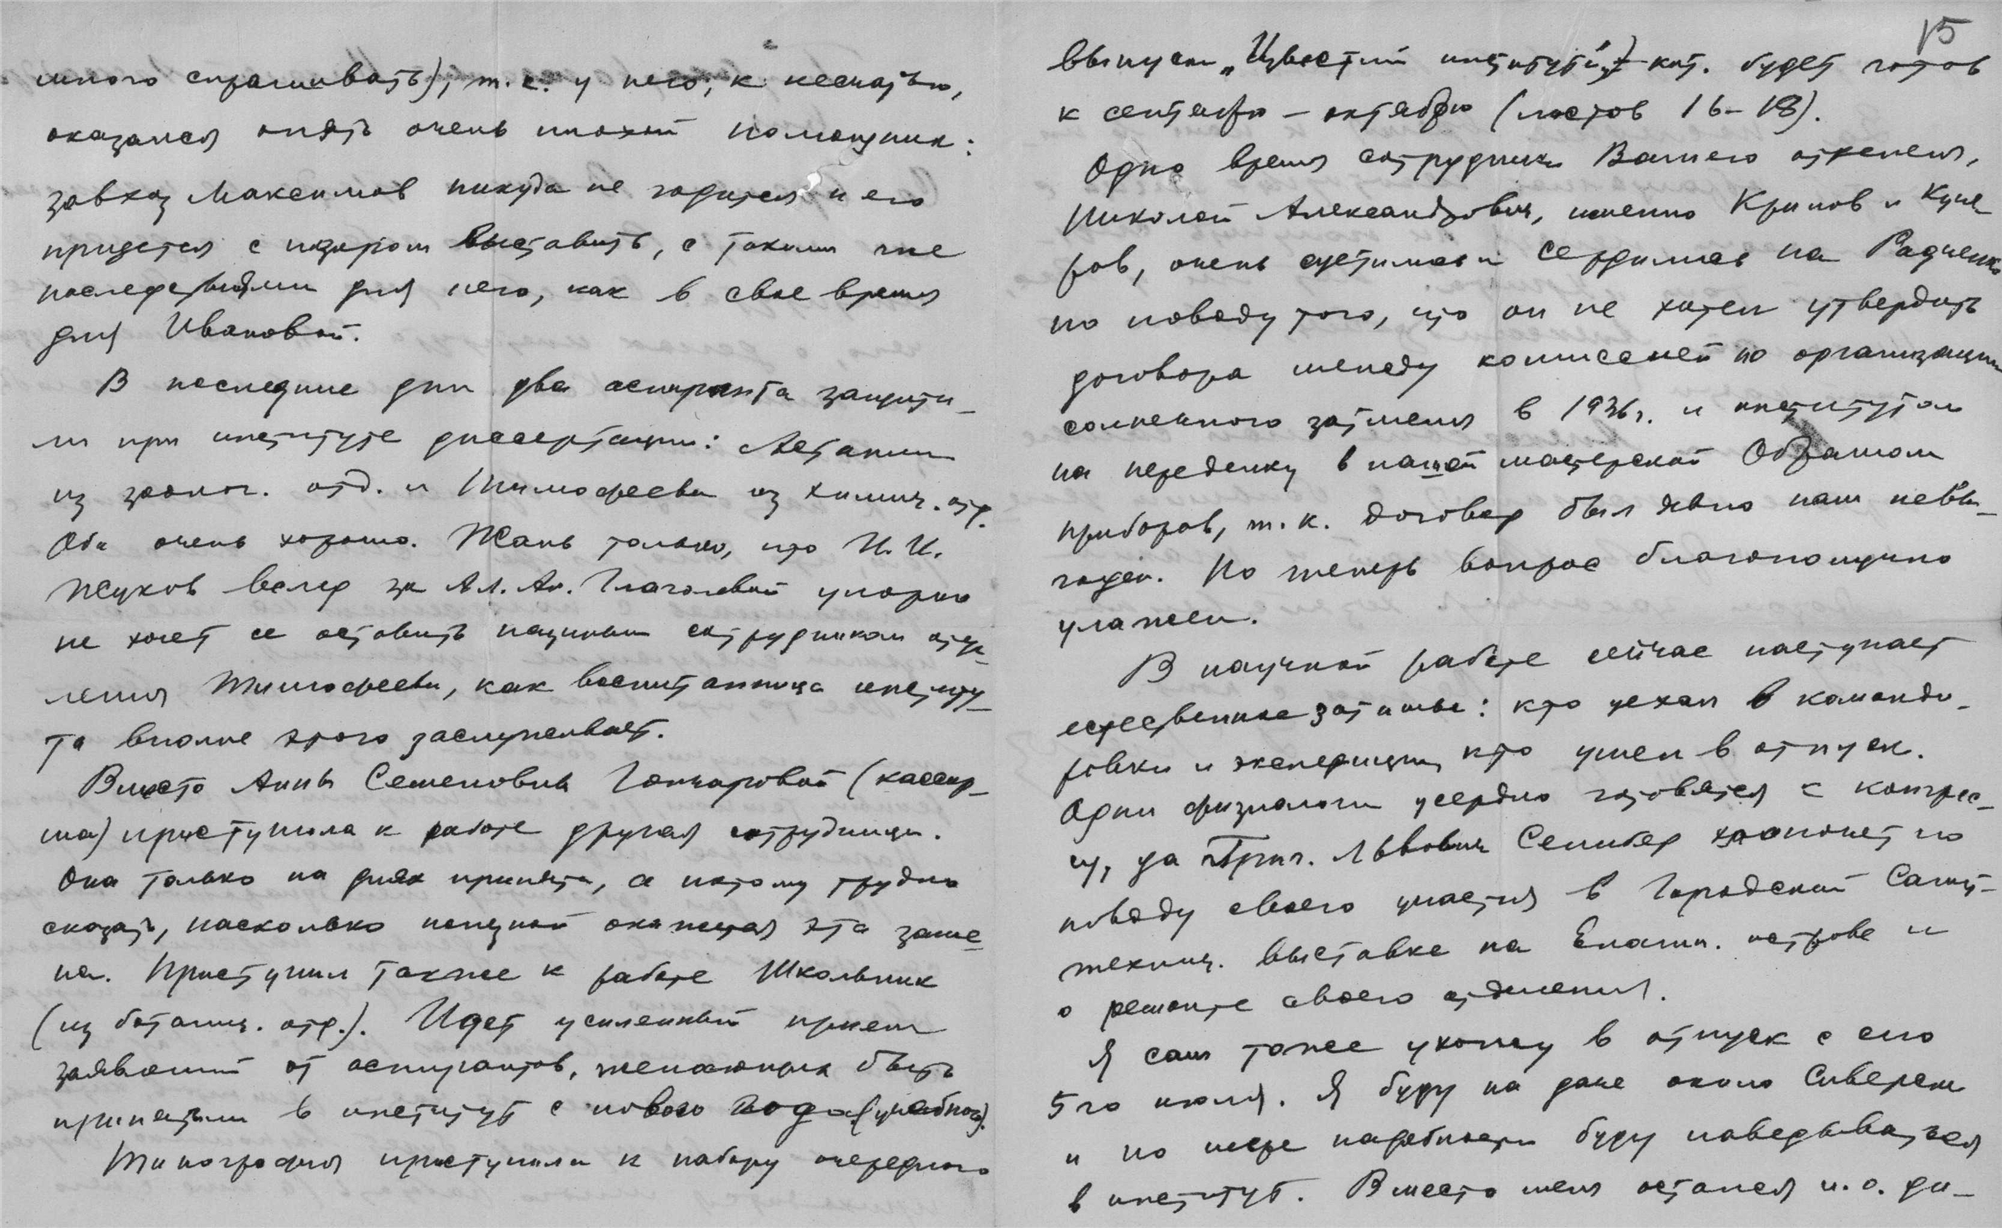 много спрашивать); т.к. у него, к несчастью,
оказался опять очень плохой помощник:
завхоз Максимов никуда не годится и его
придется с позором выставить, с такими же
последствиями для него, как в свое время
для Ивановой.
В последние дни два аспиранта защити-
ли при институте диссертации: Астанин
из зоолог. отд. и Тимофеева из химич. отд.
Оба очень хорошо. Жаль только, что И.И.
Жуков вслед за Ал. Ал. Глаголевой упорно
не хочет ее оставить научным сотрудником отде-
ления Тимофеева, как воспитанница институ-
та вполне этого заслуживает.
Вместо Анны Семеновны Гончаровой (кассир-
ша) приступила к работе другая сотрудница.
Она только на днях принята, а потому трудно
сказать, насколько ценной окажется эта заме-
на. Приступил также к работе Школьник
(из ботанич. отд.). Идет усиленный прием
заявлений от аспирантов, желающих быть
принятыми в институт с нового года (учебного).
Типография приступила к набору очередного
15
выпуска „Известий института", кот. будет готов
к сентябрю – октябрю (листов 16–18).
Одно время сотрудники Вашего отделения,
Николай Александрович, именно Кринов и Куче-
ров, очень суетились и сердились на Радченко
по поводу того, что он не хотел утвердить
договора между комиссией по организации
солнечного затмения в 1936 г. и институтом
на переделку в нашей мастерской Обрашом
приборов, т.к. договор был явно нам невы-
годен. Но теперь вопрос благополучно
улажен.
В научной работе сейчас наступает
естественное затишье: кто уехал в команди-
ровки и экспедиции, кто ушел в отпуск.
Одни физиологи усердно готовятся к конгрес-
су, да Григ. Львович Селибер хлопочет по
поводу своего участия в Городской Сану-
технич. выставке на Елагин. острове и
о ремонте своего отделения.
Я сам тоже ухожу в отпуск с его
5го июля. Я буду на даче около Сиверской
и по мере надобности буду наведываться
в институт. Вместо меня остался и.о. ди-